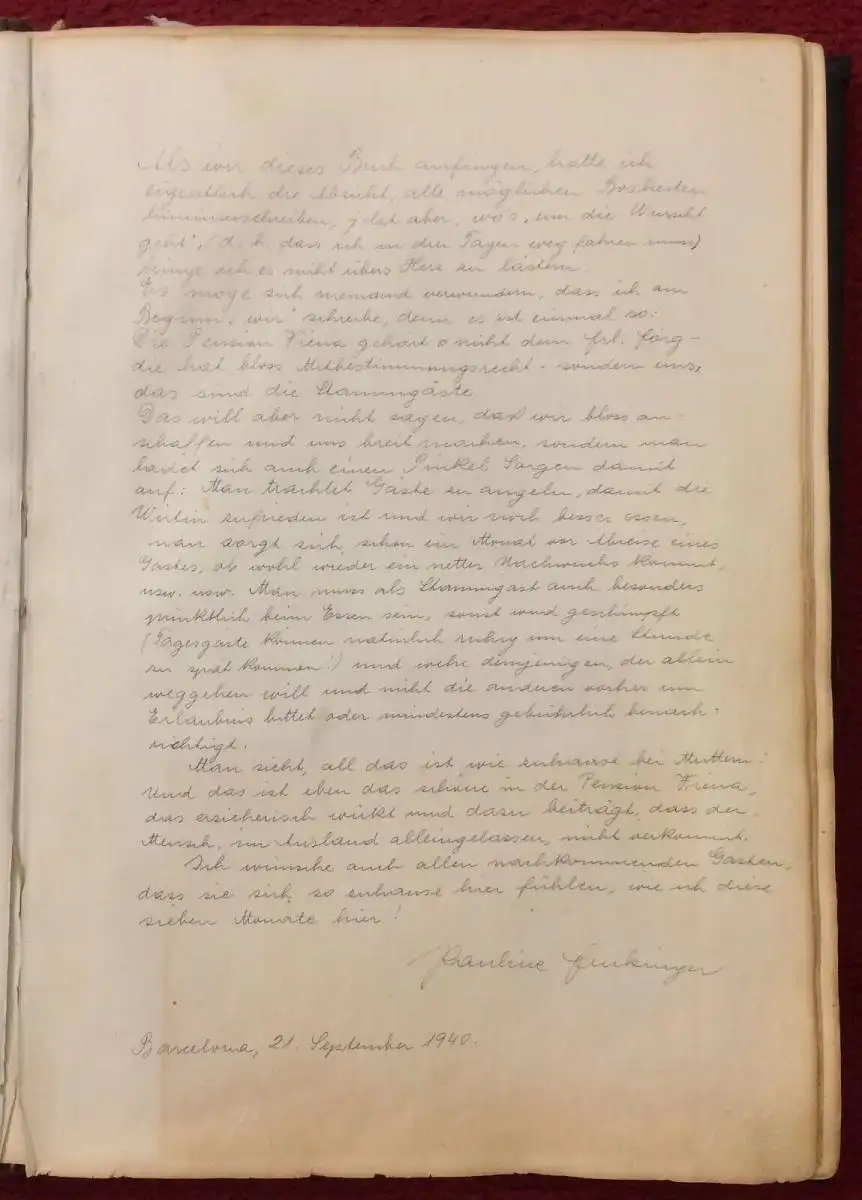 Als wir dieses Buch anfingen, hatte ich
eigentlich die Absicht, alle möglichen Bosheiten
hineinzuschreiben, jetzt aber, wo's „um die Wurscht
geht", (d. h. dass ich in drei Tagen weg fahren muss)
bringe ich es nicht übers Herz zu lästern.
Es möge sich niemand verwundern, dass ich am
Beginn „wir" schreibe, denn es ist einmal so:
Die Pension Frena gehört nicht dem Frl.
die hat bloss Mitbestimmungsrecht - sondern uns,
das sind die Stammgäste.
Das will aber nicht sagen, dass wir bloss an-
schaffen und uns breit machen, sondern man
ladet sich auch einen Pinkel Sorgen damit
auf: Man trachtet Gäste zu angeln, damit die
Wirtin zufrieden ist und wir noch besser essen,
man sorgt sich schon ein Monat vor Abreise eines
Gastes, ob wohl wieder ein netter Nachwuchs kommt,
usw. usw. Man muss als Stammgast auch besonders
pünktlich beim Essen sein, sonst wird geschimpft
(Tagesgäste können natürlich ruhig um eine Stunde
zu spät kommen!) und wehe demjenigen, der allein
weggehen will und nicht die anderen vorher um
Erlaubnis bittet oder mindestens gebührlich benach-
richtigt.
Man sieht, all das ist wie zuhause bei Muttern!
Und das ist eben das schöne in der Pension Frena,
das erzieherisch wirkt und dazu beiträgt, dass der
Mensch, im Ausland alleingelassen, nicht verkommt.
Ich wünsche auch allen nachkommenden Gästen,
dass sie sich so zuhause hier fühlen, wie ich diese
sieben Monate hier!
Pauline
Barcelona, 21. September 1940.